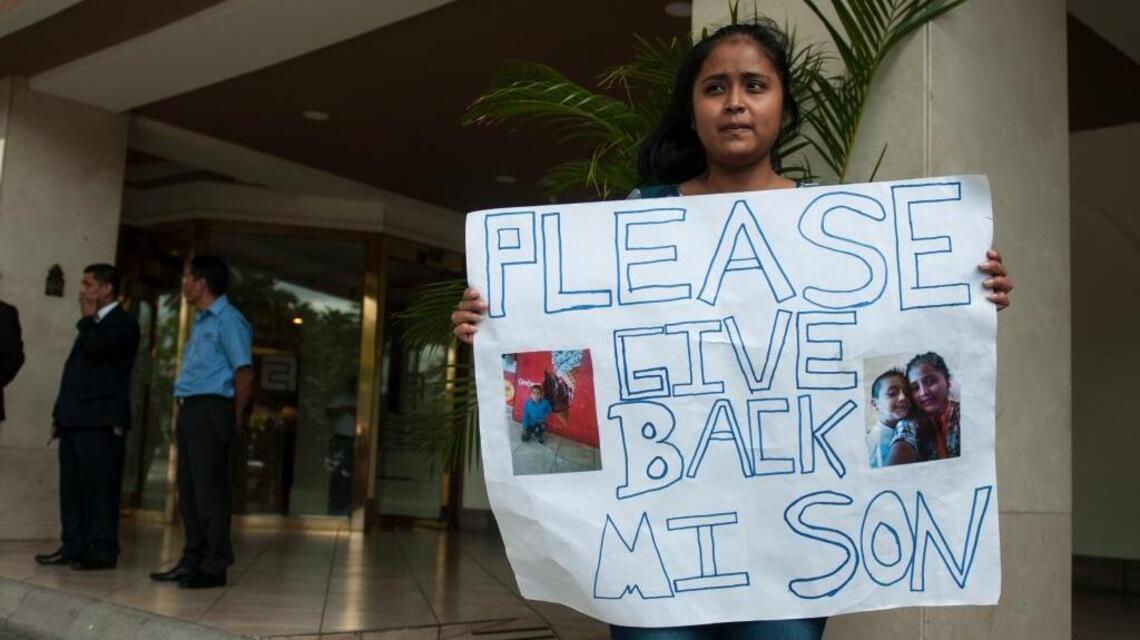 PLEASE
GIVE
BACK
MI SON